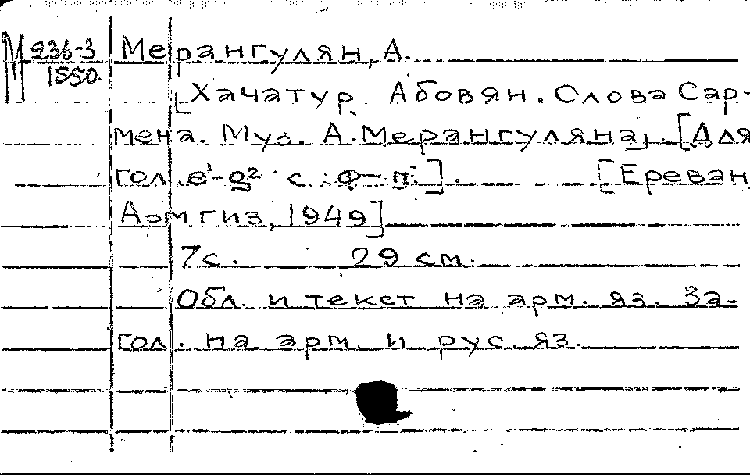 М 936-3 Мерангулян, А.
1550
[Хачатур Абовян. Слова Сар-
мена. Муз. А. Мерангуляна]. [Для
гол. e¹-g² с ф-п.]. [Ереван
Аэмгиз, 1949]
7с. 29 см.
Обл. и текст на арм. яз. За-
гол. на арм и рус яз.